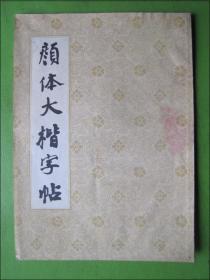 顔体大楷字帖